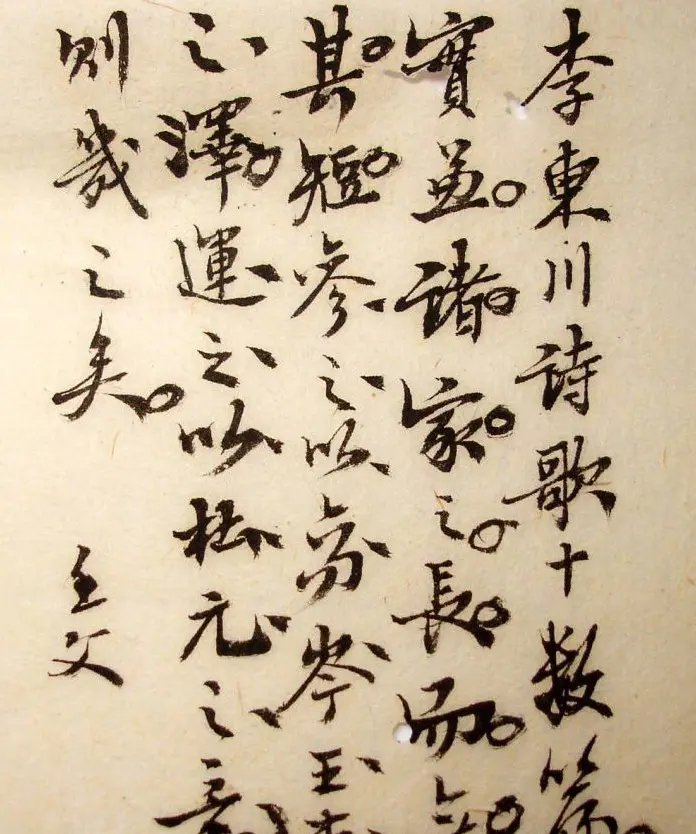 李東川詩歌十數篇
實兼諸家之長而
其短參之以高岑王李
之澤運之以杜元之意
則幾之矣
壬父